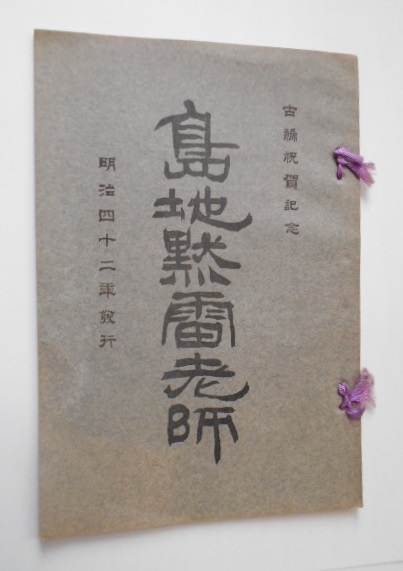 古稀祝賀記念
島地黙雷老師
明治四十二年発行